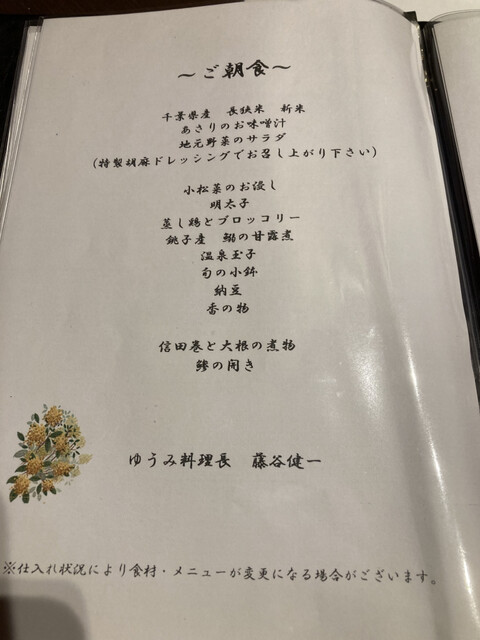 ～ご朝食～
千葉県産　長狭米　新米
あさりのお味噌汁
地元野菜のサラダ
(特製胡麻ドレッシングでお召し上がり下さい)
小松菜のお浸し
明太子
蒸し鶏とブロッコリー
銚子産　鰯の甘露煮
温泉玉子
旬の小鉢
納豆
香の物
信田巻と大根の煮物
鯵の開き
ゆうみ料理長　藤谷健一
※仕入れ状況により食材・メニューが変更になる場合がございます。